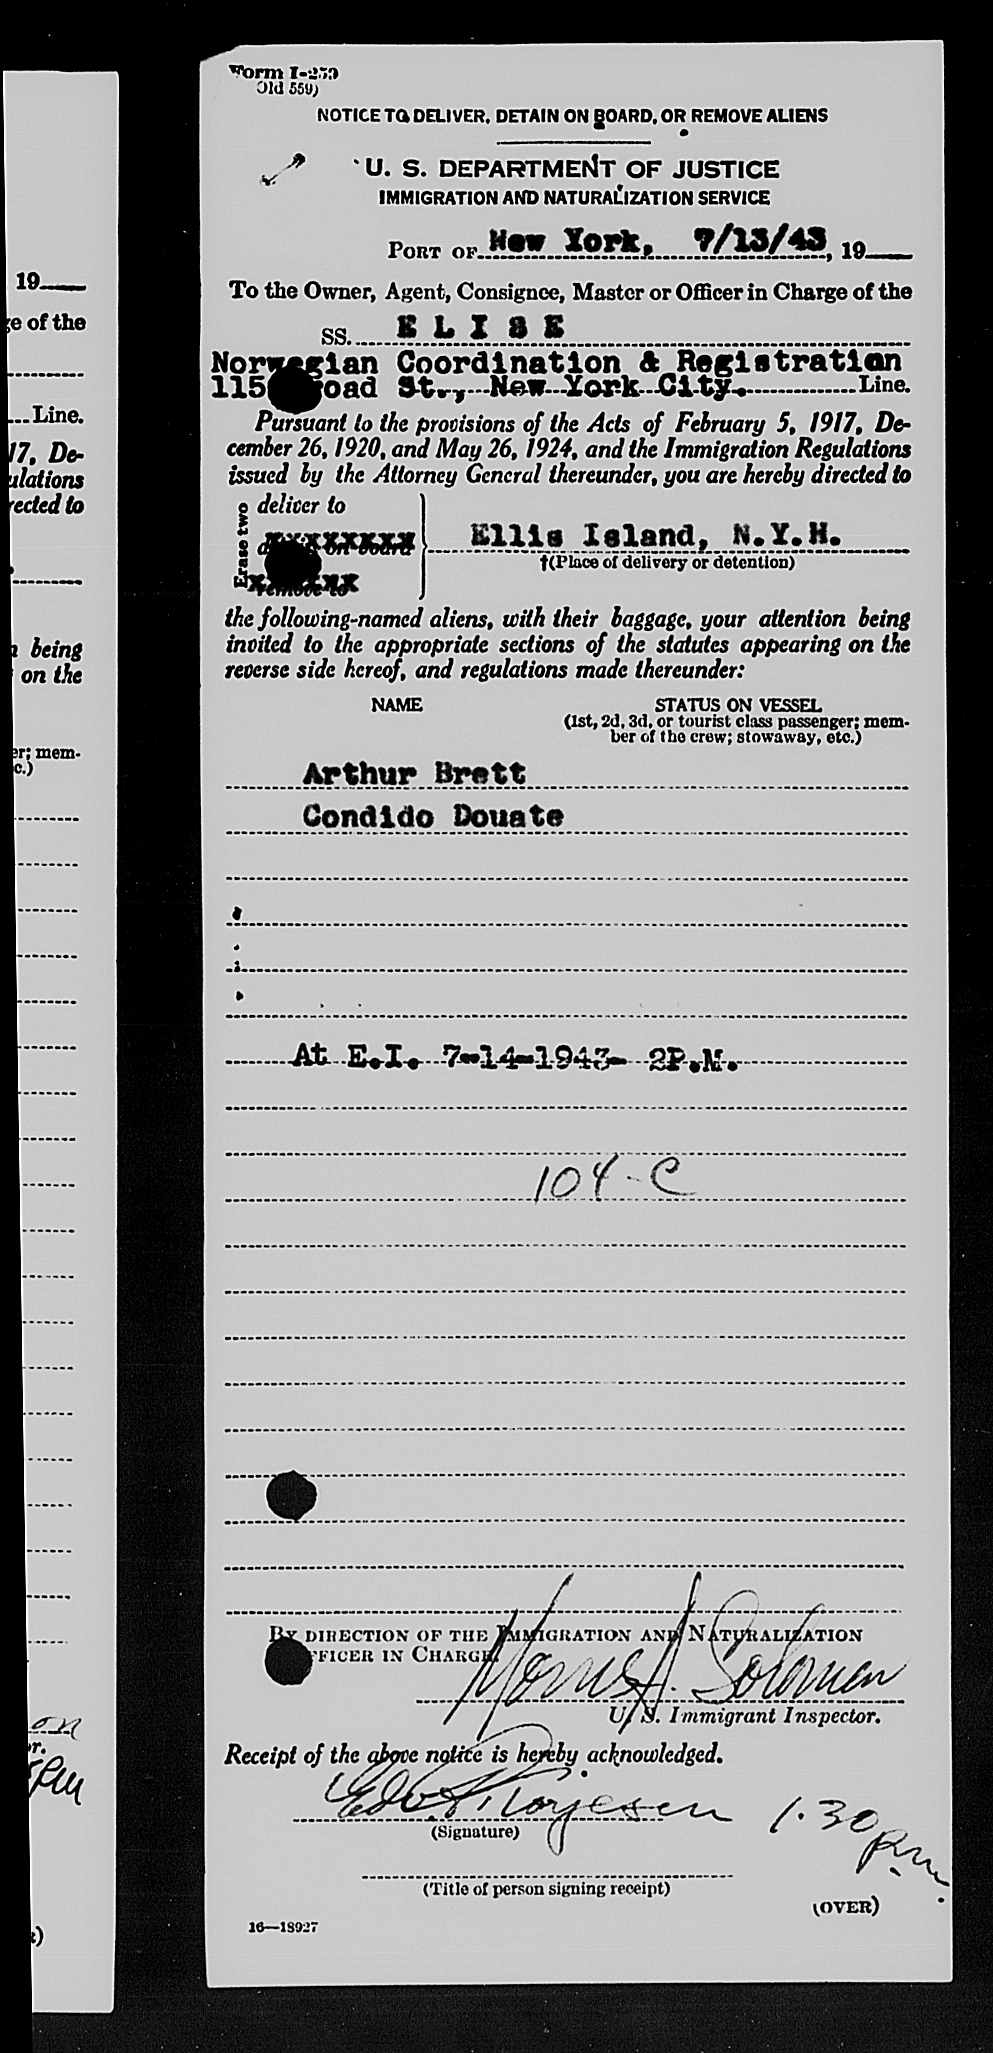 19
ge of the
Line.
17, De-
ulations
rected to
being
on the
er; mem-
c.)
on
or.
pm
Form I-259
Old 559)
NOTICE TO DELIVER, DETAIN ON BOARD, OR REMOVE ALIENS
U. S. DEPARTMENT OF JUSTICE
IMMIGRATION AND NATURALIZATION SERVICE
PORT OF New York, 7/13/43, 19
To the Owner, Agent, Consignee, Master or Officer in Charge of the
SS. E L I S E
Norwegian Coordination & Registration
115 road St., New York City. Line.
Pursuant to the provisions of the Acts of February 5, 1917, De-
cember 26, 1920, and May 26, 1924, and the Immigration Regulations
issued by the Attorney General thereunder, you are hereby directed to
Erase two
deliver to
xxxxxxxx
on board
remove to
Ellis Island, N.Y.H.
†(Place of delivery or detention)
the following-named aliens, with their baggage, your attention being
invited to the appropriate sections of the statutes appearing on the
reverse side hereof, and regulations made thereunder:
NAME STATUS ON VESSEL
(1st, 2d, 3d, or tourist class passenger; mem-
ber of the crew; stowaway, etc.)
Arthur Brett
Condido Douate
At E.I. 7-14-1943- 2P.M.
104-C
BY DIRECTION OF THE IMMIGRATION AND NATURALIZATION
FFICER IN CHARGE.
Morris A. Solomon
U. S. Immigrant Inspector.
Receipt of the above notice is hereby acknowledged.
1.30 pm.
(Signature)
(Title of person signing receipt)
(OVER)
16—18927